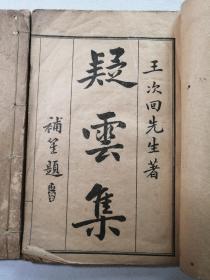 王次回先生著
疑雲集
補笙題